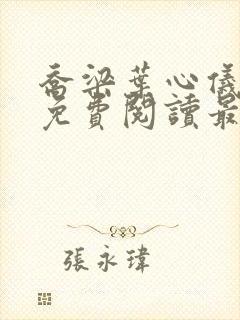 喬梁葉心儀
免費閱讀最
張永瑋